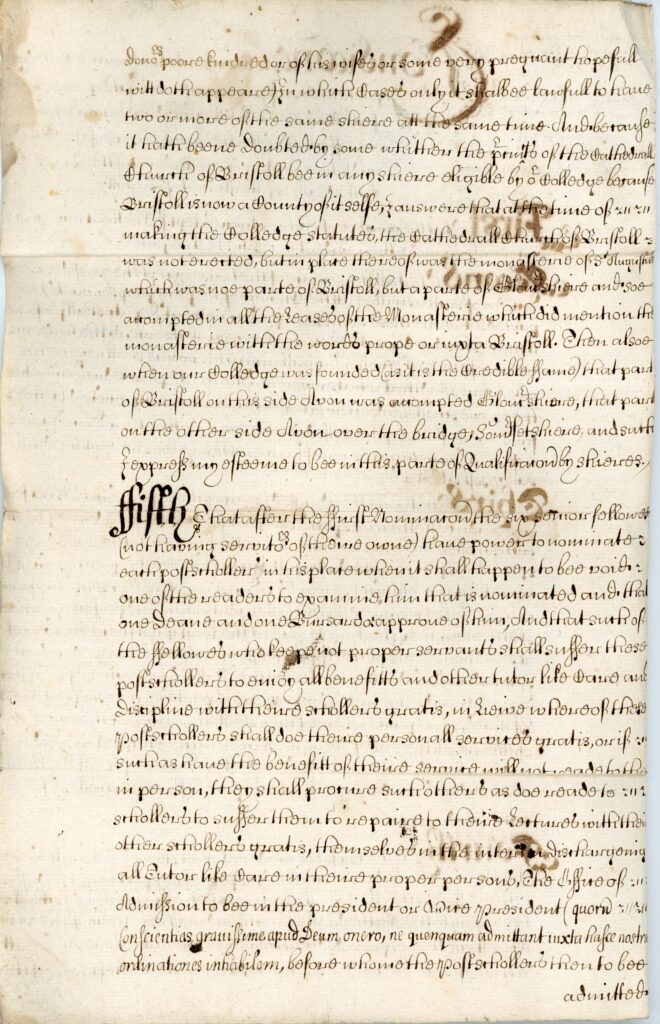 dono:rs poore kindred or of his wifes or some very pregnant hopefull
witt doth appeare) In which Cases only it shalbee lawfull to have
two or more of the same shiere att the same time. And because
it hath beene doubted by some whither the p:rcincts of the Cathedrall
Church of Bristoll bee in any shiere eligible by o:r Colledge because
Bristoll is now a County of it selfe, I answere that at the time of
making the Colledge statutes, the Cathedrall Church of Bristoll
was not erected, but in place thereof was the monasterie of S:t Augustin
which was noe parte of Bristoll, but a parte of Glou:rshiere and soe
accompted in all the Leases of the Monasterie which did mention the
monasterie with the words prope or iuxta Bristoll. Then alsoe
when our Colledge was founded (as it is the Credible ffame) that part
of Bristoll on this side Avon was accompted Glou:rshiere, that part
on the other side Avon over the bridge, Som:rsetshiere, and such
I express my esteeme to bee in this parte of Qualificacon by shieres.
ffifth That after the ffirst Nominacon the six senior fellowes
(not having servito:rs of theire owne) have power to nominate
each post scholler in his place when it shall happen to bee void
one of the readers to examine him that is nominated and that
one deane and one Bursar do approve of him, And that such of
the ffellowes who keepe not proper servants shall suffer these
postschollers to enioy all benefitts and other tutor like Care and
discipline with theire schollers gratis, in Liewe whereof those
Postschollers shall doe theire personall services gratis, or if
such as have the benefitt of theire service will not reade to them
in person, they shall procure such others as doe reade to
schollers to suffer them to repaire to theire Lectures with their
other schollers gratis, themselves in the interim dischargeing
all Tutor like Care in theire proper persons, The Office of
Admission to bee in the president or Vice President (quorū
Conscientias gravissime apud Deum onero, ne quenquam admittant iuxta hasce nostras
ordinationes inhabilem, before whome the Postschollers then to bee
admitted